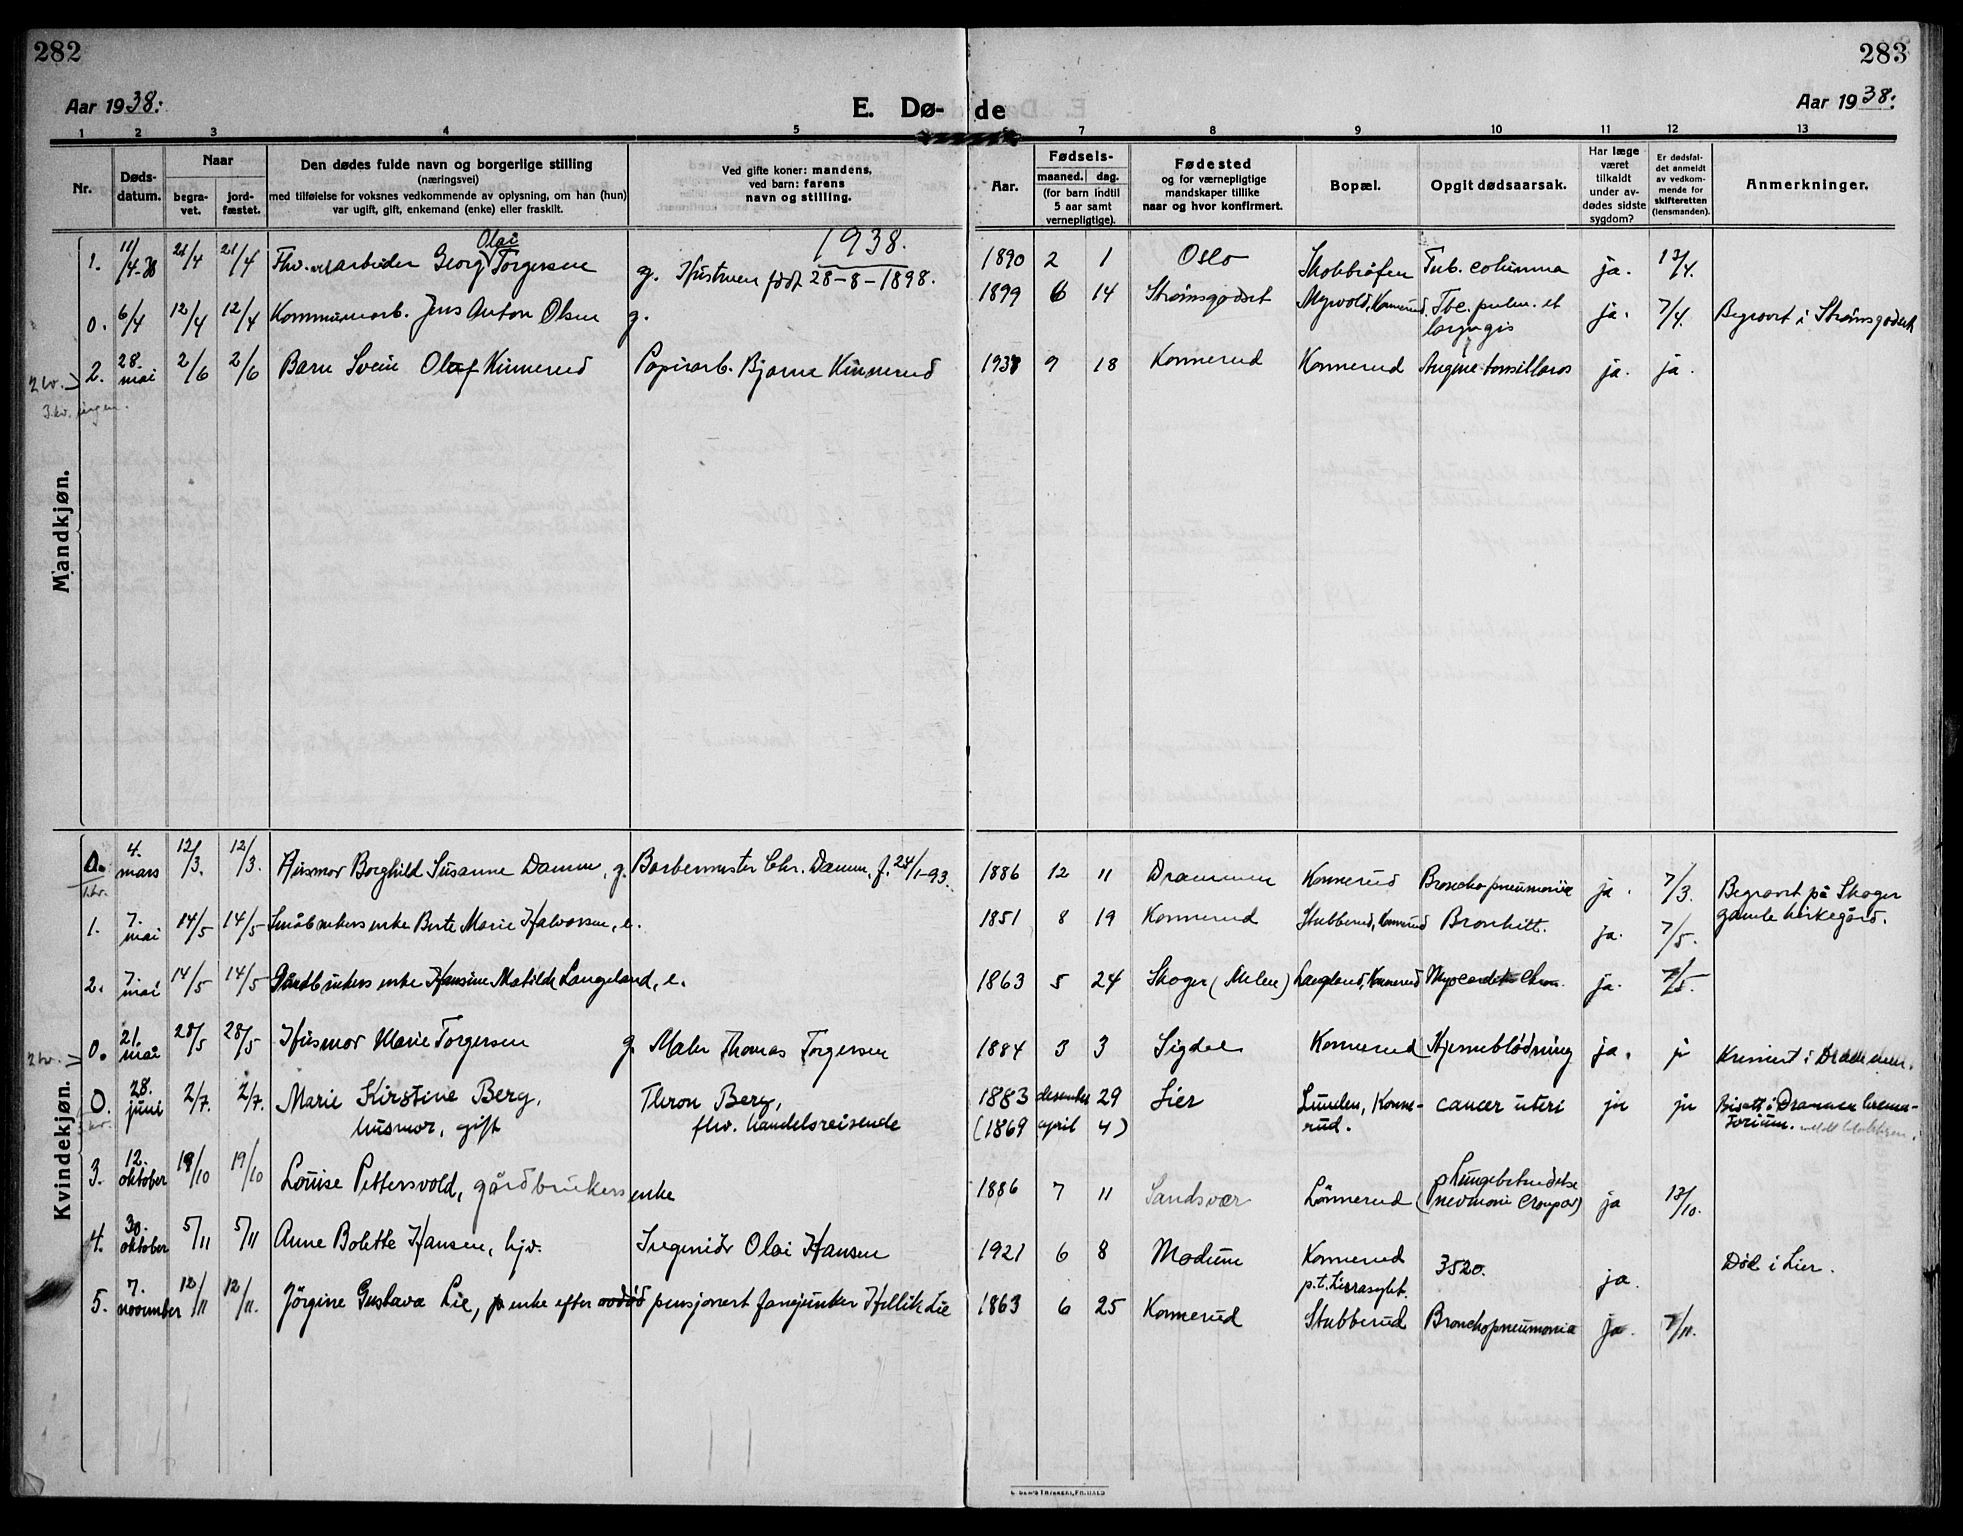 282
283
Aar 1938:
E. Dø- de
Aar 1938:
1 2 3 4 5 7 8 9 10 11 12 13
Nr.
Døds-
datum.
Naar
begra-
vet.
jord-
fæstet.
Den dødes fulde navn og borgerlige stilling
(næringsvei)
med tilføielse for voksnes vedkommende av oplysning, om han (hun)
var ugift, gift, enkemand (enke) eller fraskilt.
Ved gifte koner: mandens,
ved barn: farens
navn og stilling.
Aar.
Fødsels-
maaned. dag.
(for barn indtil
5 aar samt
vernepligtige).
Fødested
og for værnepligtige
mandskaper tillike
naar og hvor konfirmert.
Bopæl.
Opgit dødsaarsak.
Har læge
været
tilkaldt
under av-
dødes sidste
sygdom?
Er dødsfal-
det anmeldt
av vedkom-
mende for
skifteretten
(lensmanden).
Anmerkninger.
Mandkjøn.
1938.
1. 11/4-38 21/4 21/4 Fhv. arbeider Georg Olai Torgersen g. Hustruen født 28-8-1898. 1890 2 1 Oslo Tub. columna ja. 12/4.
0. 6/4 12/4 12/4 Kommunearb. Jens Anton Olsen g. 1899 6 14 Strømsgodset Myrvold, Konnerud. Tbc. pulm. et
laryngis ja. 7/4. Begravet i Strømsgodset
2. 28. mai 2/6 2/6 Barn Svein Olaf Kinnerud Papirarb. Bjarne Kinnerud 9 18 Konnerud Konnerud Angina tonsillaris ja. ja.
2 kv.
3. kv. ingen.
Kvindekjøn.
0. 4. mars 12/3. 12/3. Husmor Borghild Susanne Damm, g. Barbermester Chr. Damm, f. 24/1-93. 1886 12 11 Drammen Konnerud Bronchopneumonie ja. 7/3. Begravet på Skoger
gamle kirkegård.
1.kv.
1. 7. mai 14/5 14/5 Småbrukers enke Berte Marie Halvorsen, e. 1851 8 19 Konnerud Stubberud, Konnerud Bronkitt. ja. 7/5.
2. 7. mai 14/5 14/5 Gårdbrukers enke Hansine Matilde Langeland, e. 1863 5 24 Skoger Langeland, Konnerud Myocardit chron. ja. 7/5.
2 kv.
0. 21. mai 28/5 28/5 Husmor Marie Torgersen g. Maler Thomas Torgersen 1884 3 3 Sigdal Konnerud Hjerneblødning ja. ja Kremert i Drammen.
0. 28. juni 2/7. 2/7. Marie Kirstine Berg, Theron Berg, 1883 desember 29 Lier Lunden, Konne- cancer uteri ja ja Bisatt i Drammen krema-
husmor, gift fhv. handelsreisende (1869 april 4) rud. torium.
3. 12. oktober 19/10 19/10 Louise Pettersvold, gårdbrukers enke 1886 7 11 Sandsvær Lungebetendelse
(pnevmoni croupøs) ja 13/10.
4. 30. oktober 5/11 5/11 Anne Bolette Hansen, hjv. Ingeniør Olai Hansen 1921 6 8 Modum Konnerud
p.t. Lierasylet. 3520. ja. Død i Lier.
5. 7. november 12/11 12/11. Jörgine Gustava Lie, enke efter avdød pensjonert fanejunker Hellik Lie 1863 6 25 Konnerud Stubberud Bronchopneumonia ja. 7/11.